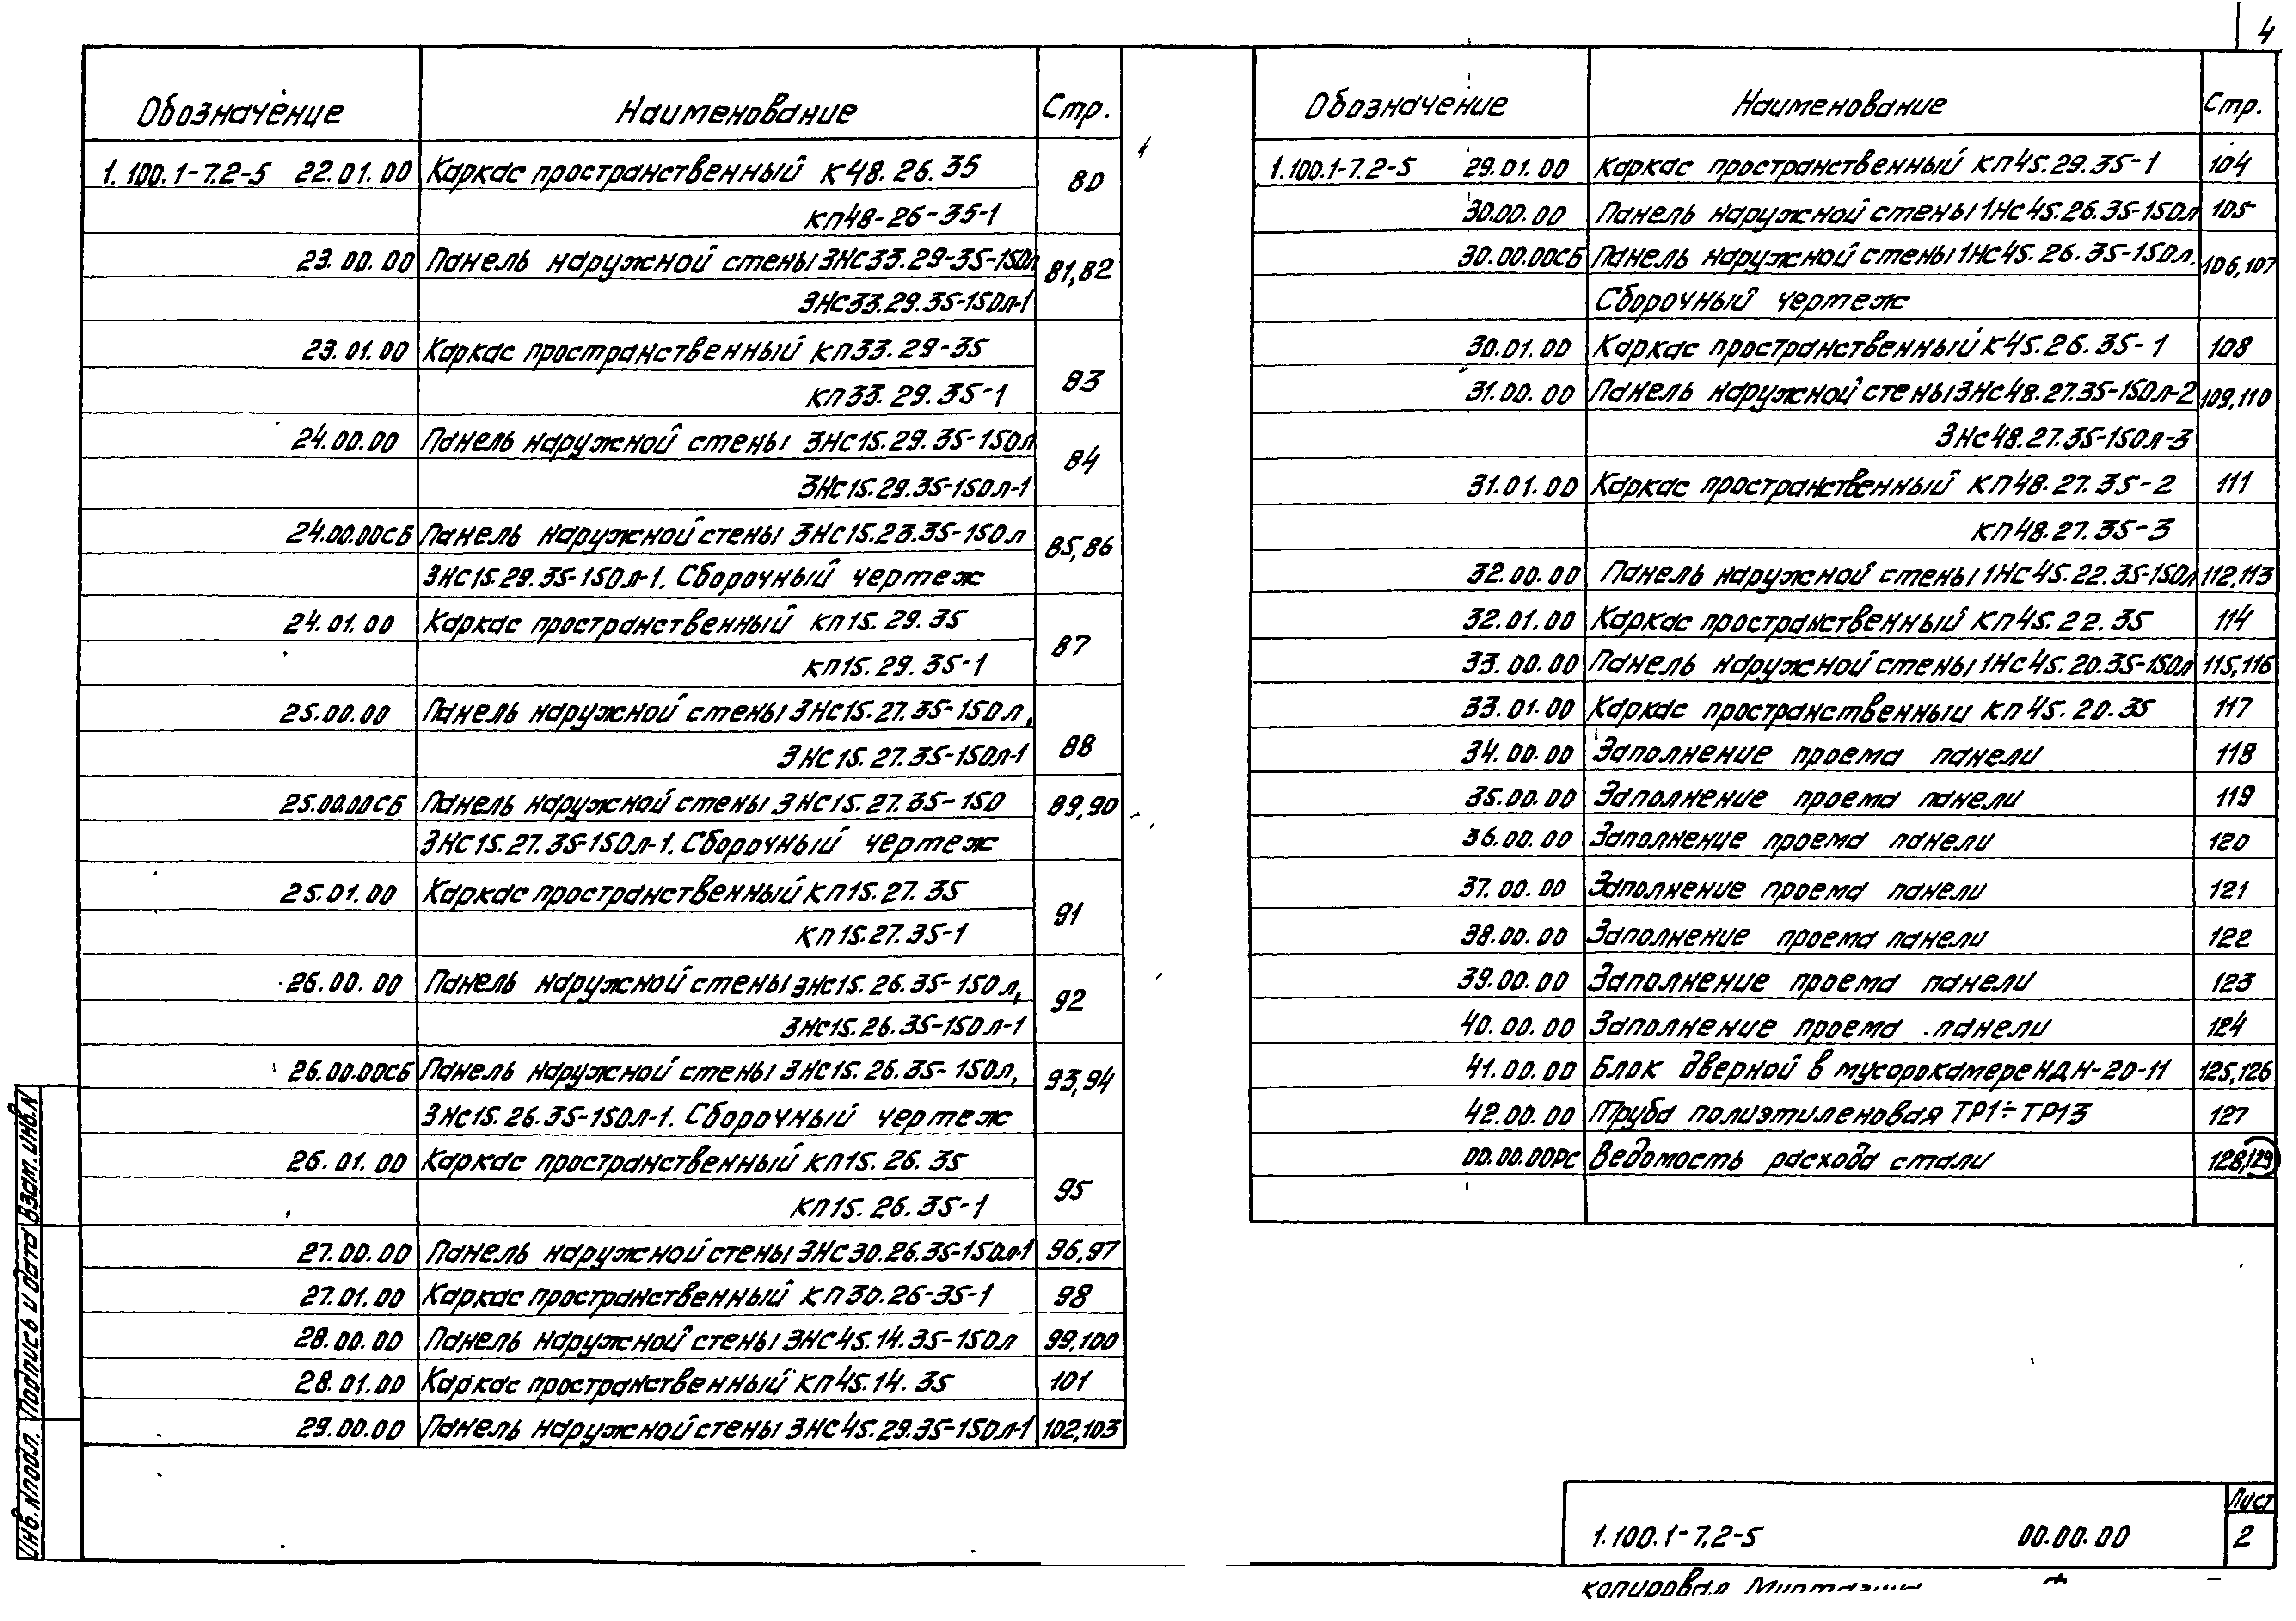 4
Обозначение Наименование Стр.
1.100.1-7.2-5 22.01.00 Каркас пространственный К48.26.35 80
КП48-26-35-1
23.00.00 Панель наружной стены 3НС33.29-35-150л 81,82
3НС33.29.35-150л-1
23.01.00 Каркас пространственный КП33.29-35 83
КП33.29.35-1
24.00.00 Панель наружной стены 3НС15.29.35-150л 84
3НС15.29.35-150л-1
24.00.00СБ Панель наружной стены 3НС15.23.35-150л 85,86
3НС15.29.35-150л-1. Сборочный чертеж
24.01.00 Каркас пространственный КП15.29.35 87
КП15.29.35-1
25.00.00 Панель наружной стены 3НС15.27.35-150л, 88
3НС15.27.35-150л-1
25.00.00СБ Панель наружной стены 3НС15.27.35-150 89,90
3НС15.27.35-150л-1. Сборочный чертеж
25.01.00 Каркас пространственный КП15.27.35 91
КП15.27.35-1
26.00.00 Панель наружной стены 3НС15.26.35-150л, 92
3НС15.26.35-150л-1
26.00.00СБ Панель наружной стены 3НС15.26.35-150л, 93,94
3НС15.26.35-150л-1. Сборочный чертеж
26.01.00 Каркас пространственный КП15.26.35 95
КП15.26.35-1
27.00.00 Панель наружной стены 3НС30.26.35-150л-1 96,97
27.01.00 Каркас пространственный КП30.26-35-1 98
28.00.00 Панель наружной стены 3НС45.14.35-150л 99,100
28.01.00 Каркас пространственный КП45.14.35 101
29.00.00 Панель наружной стены 3НС45.29.35-150л-1 102,103
Обозначение Наименование Стр.
1.100.1-7.2-5 29.01.00 Каркас пространственный КП45.29.35-1 104
30.00.00 Панель наружной стены 1НС45.26.35-150л 105
30.00.00СБ Панель наружной стены 1НС45.26.35-150л. 106,107
Сборочный чертеж
30.01.00 Каркас пространственный К45.26.35-1 108
31.00.00 Панель наружной стены 3НС48.27.35-150л-2 109,110
3НС48.27.35-150л-3
31.01.00 Каркас пространственный КП48.27.35-2 111
КП48.27.35-3
32.00.00 Панель наружной стены 1НС45.22.35-150л 112,113
32.01.00 Каркас пространственный КП45.22.35 114
33.00.00 Панель наружной стены 1НС45.20.35-150л 115,116
33.01.00 Каркас пространственный КП45.20.35 117
34.00.00 Заполнение проема панели 118
35.00.00 Заполнение проема панели 119
36.00.00 Заполнение проема панели 120
37.00.00 Заполнение проема панели 121
38.00.00 Заполнение проема панели 122
39.00.00 Заполнение проема панели 123
40.00.00 Заполнение проема панели 124
41.00.00 Блок дверной в мусорокамере НДН-20-11 125,126
42.00.00 Труба полиэтиленовая ТР1÷ТР13 127
00.00.00РС Ведомость расхода стали 128,129
Инв.N подл. Подпись и дата Взам.инв.N
1.100.1-7.2-5 00.00.00
Лист
2
копировал